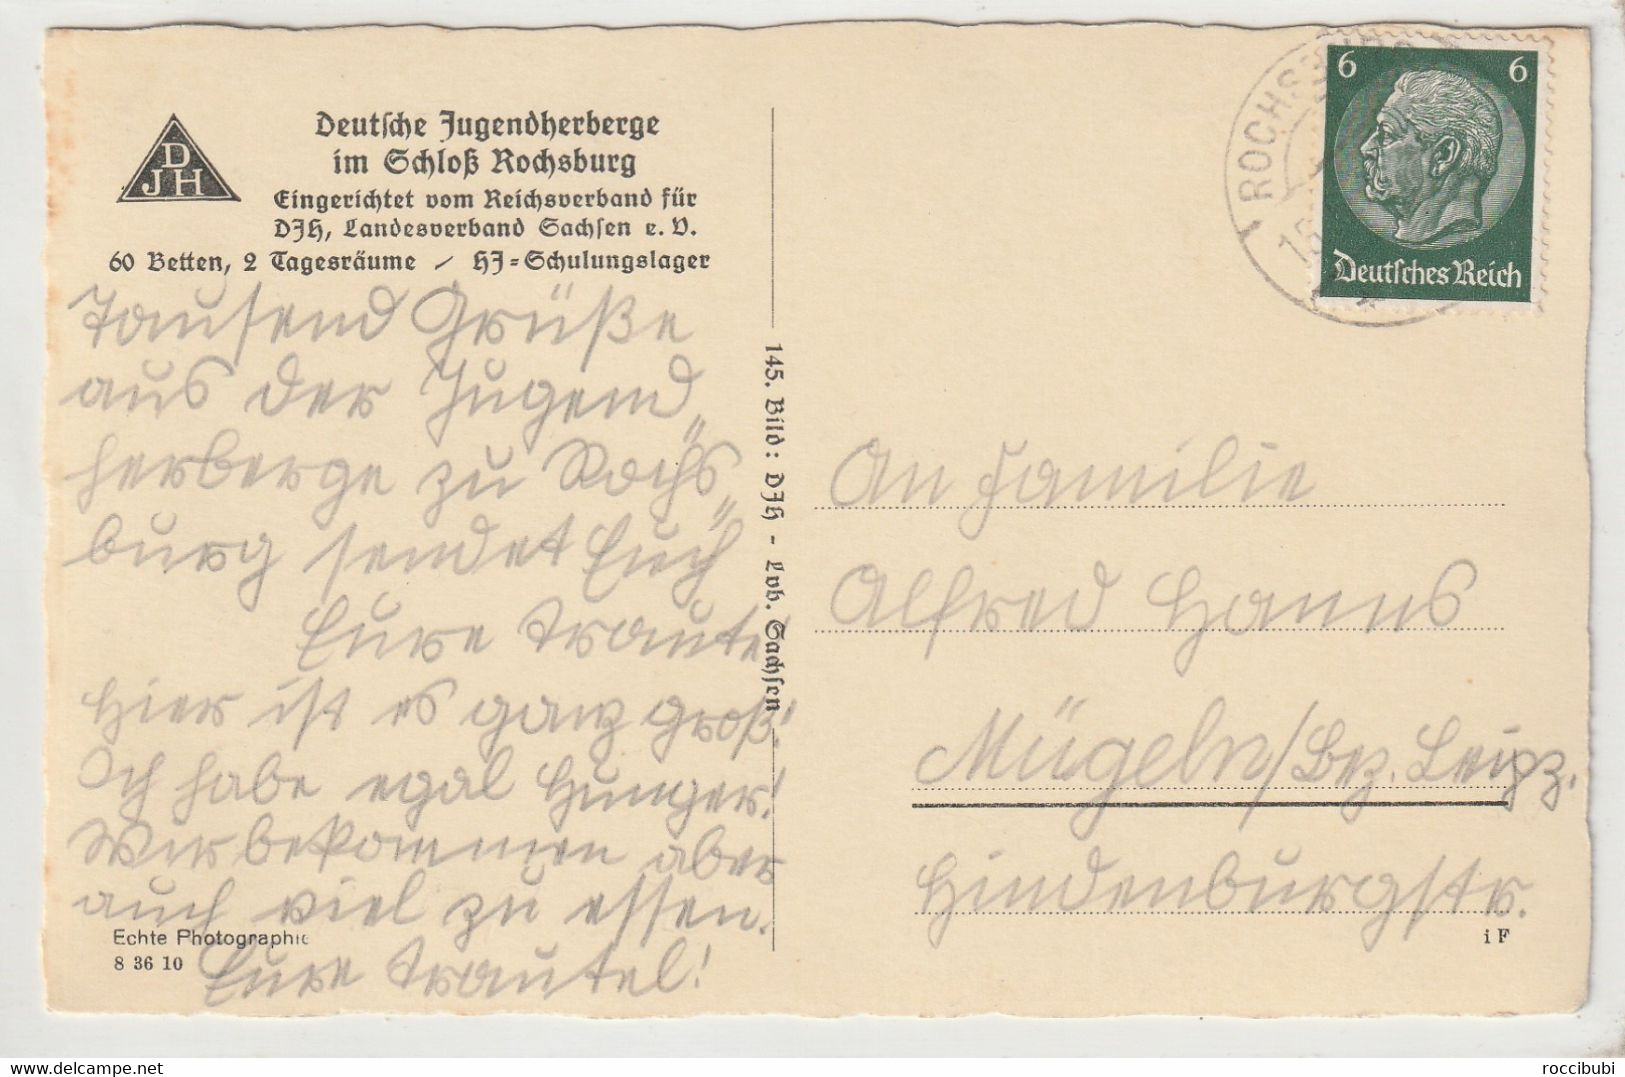 DJH
Deutsche Jugendherberge
im Schloß Rochsburg
Eingerichtet vom Reichsverband für
DJH, Landesverband Sachsen e. V.
60 Betten, 2 Tagesräume / HJ=Schulungslager
Tausend Grüße
aus der Jugend„
herberge zu Rochs„
burg sendet Euch
Eure Traute!
Hier ist es ganz groß!
Ich habe egal Hunger!
Wir bekommen aber
auch viel zu essen.
Eure Trautel!
Echte Photographie
8 36 10
145. Bild: DJH - Lvb. Sachsen
ROCHSBURG
6 6
Deutsches Reich
An Familie
Alfred Hanns
Mügeln/Bez. Leipz.
Hindenburgstr.
i F
delcampe.net
roccibubi